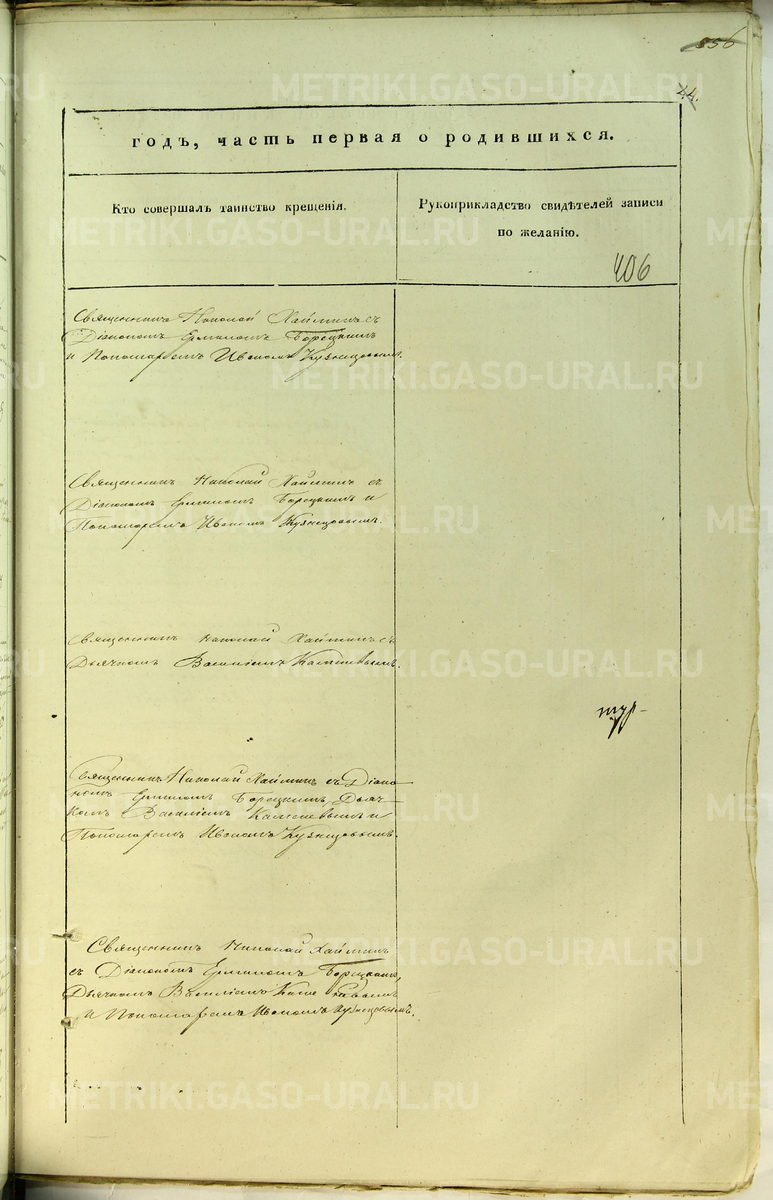 856
44.
METRIKI.GASO-URAL.RU
годъ, часть первая о родившихся.
Кто совершалъ таинство крещенія.
Рукоприкладство свидѣтелей записи
по желанію.
406
Священникъ Николай Хайминъ съ
Діакономъ Ермиломъ Борецкимъ
и Пономаремъ Иваномъ Кузнецовымъ.
Священникъ Николай Хайминъ съ
Діакономъ Ермиломъ Борецкимъ и
Пономаремъ Иваномъ Кузнецовымъ.
Священникъ Николай Хайминъ съ
Дьячкомъ Василіемъ
Священникъ Николай Хайминъ съ Діако
номъ Ермиломъ Борецкимъ, Дьяч
комъ Василіемъ и
Пономаремъ Иваномъ Кузнецовымъ.
Священникъ Николай Хайминъ
съ Діакономъ Ермиломъ Борецкимъ,
Дьячкомъ Василіемъ
и Пономаремъ Иваномъ Кузнецовымъ.